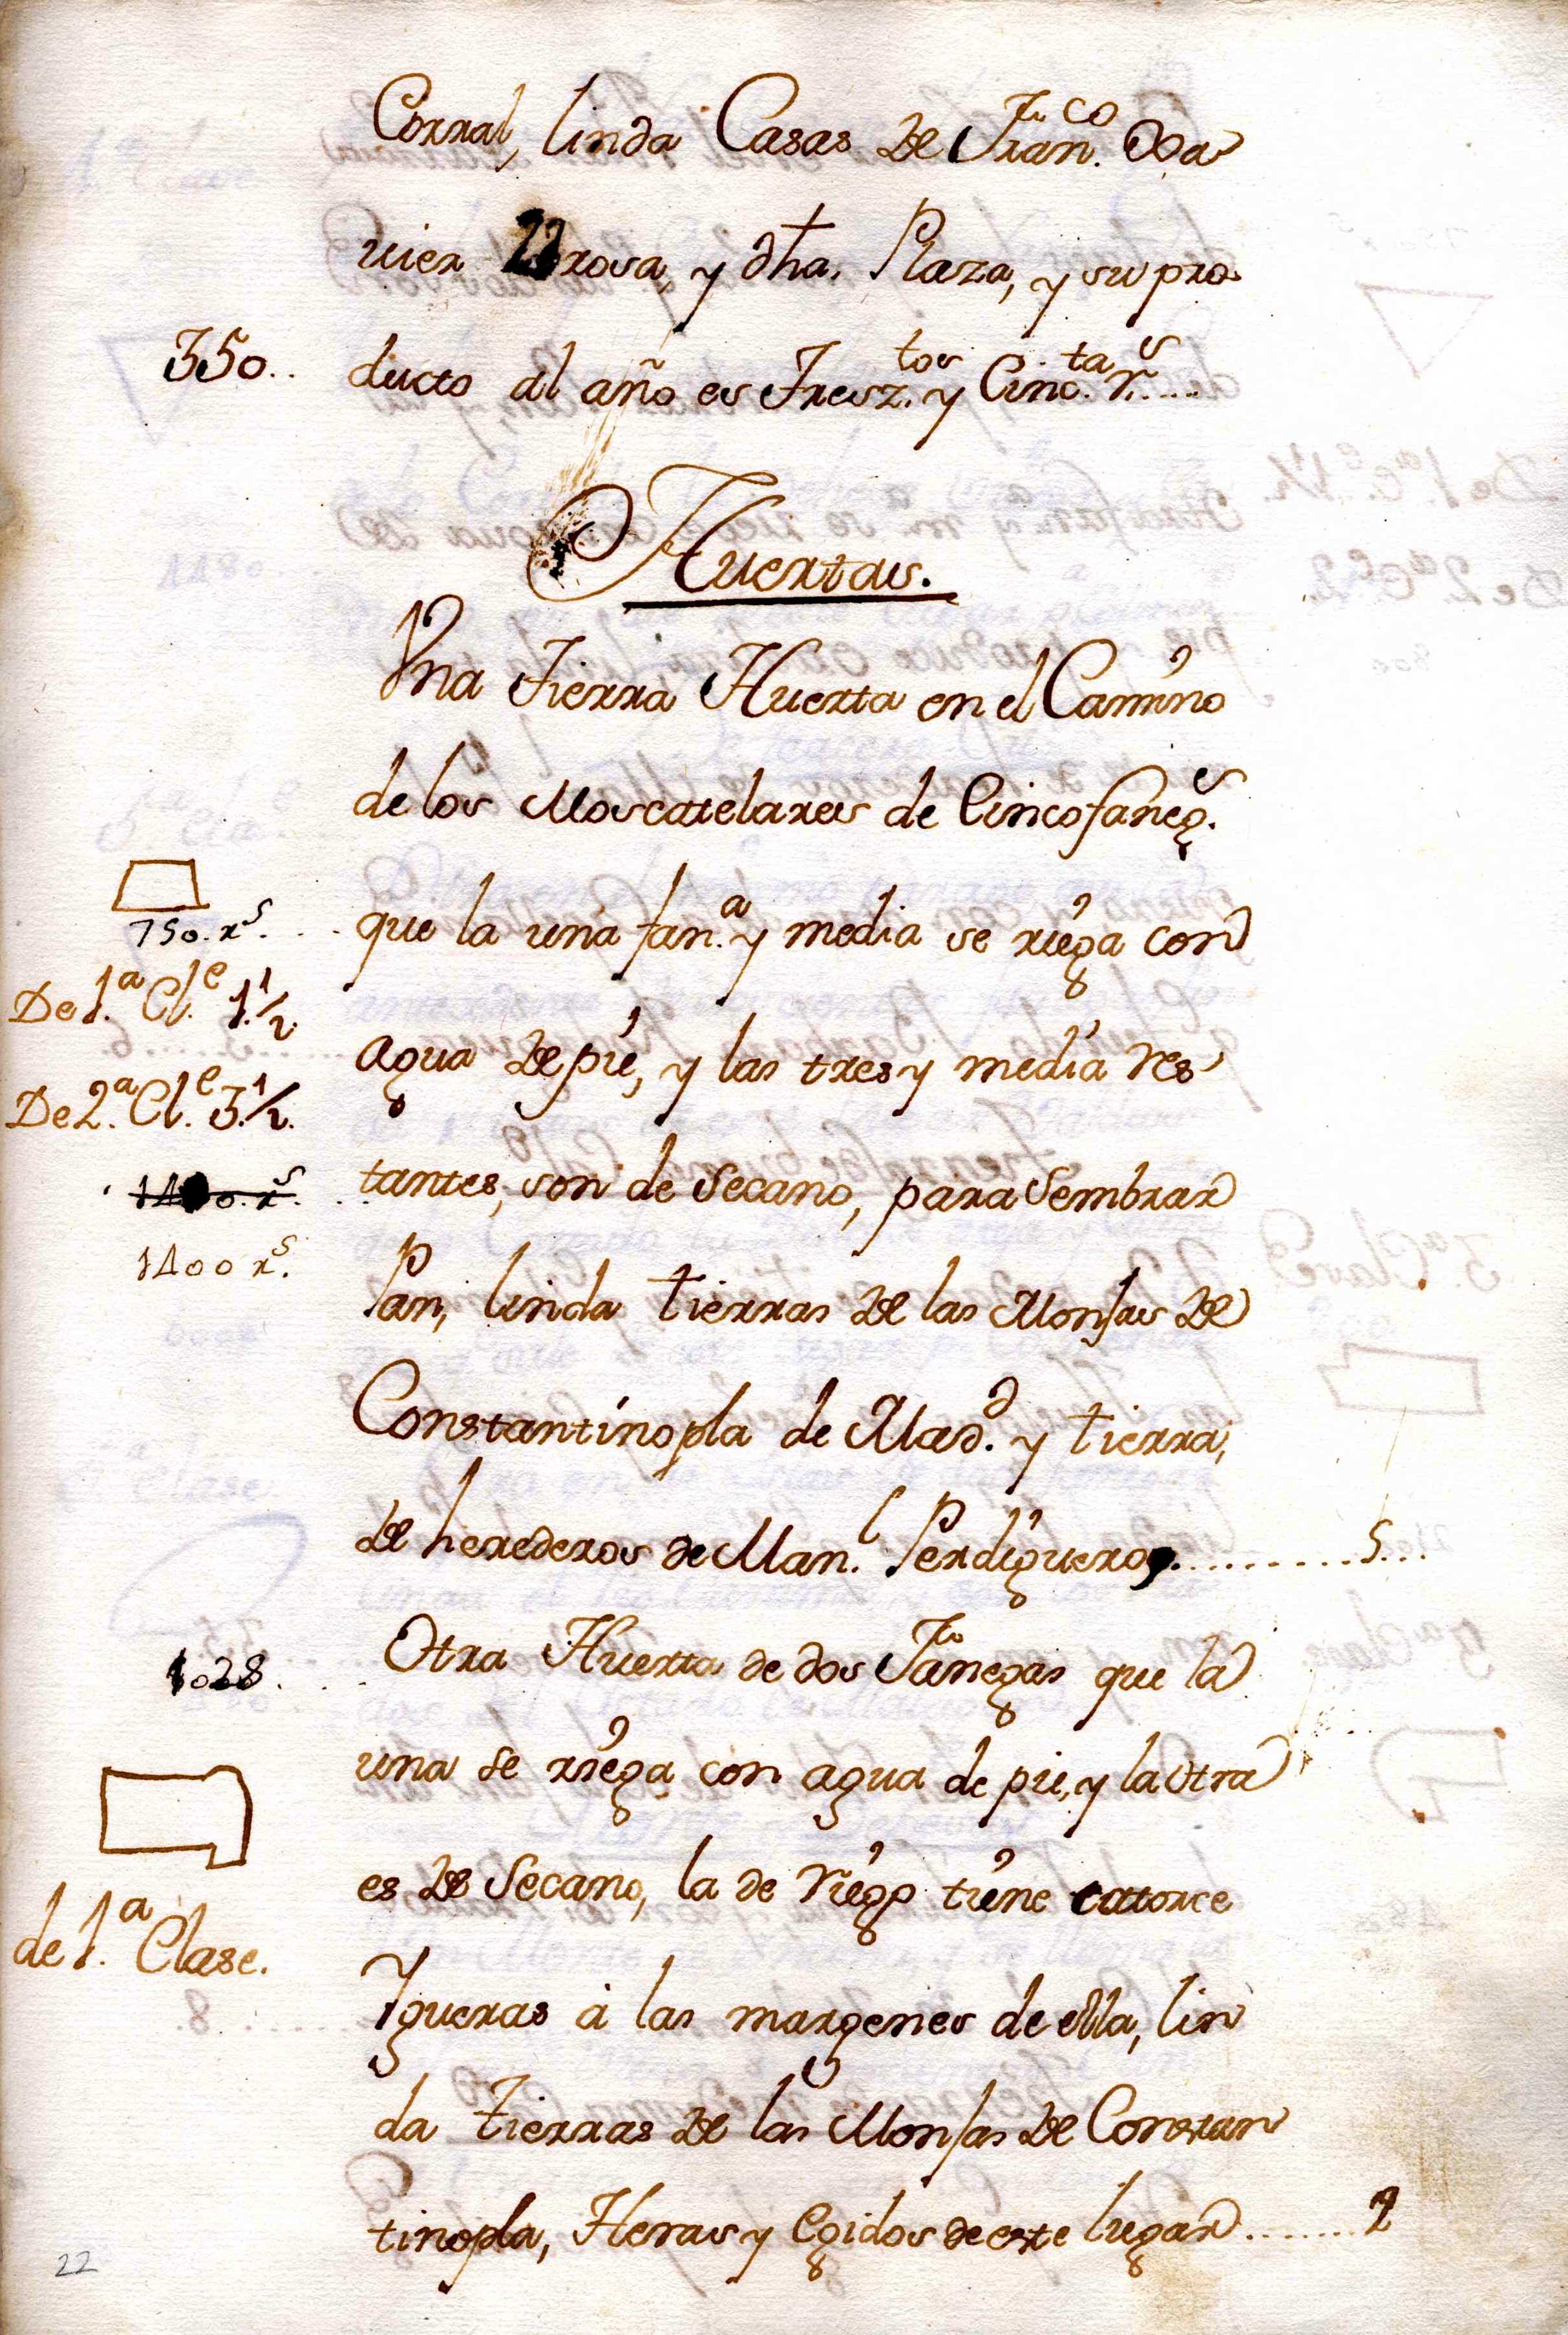 Corral, linda Casas de Fran.co Xa
vier rosa, y dha. Plaza, y su pro
350.. ducto al año es Tresz.tos y Cinc.ta r.s....
Huertas.
Vna Tierra Huerta en el Camino
de los Moscatelares de Cinco faneg.s
750. r.s . . que la una fan.a y media se riega con
De 1.a Cl.e 1.1/2. agua de pie, y las tres y media res
De 2.a Cl.e 3.1/2.
tantes, son de Secano, para Sembrar
1400 r.s Pan, linda tierras de las Monjas de
Constantinopla de Mad.d y tierra,
de herederos de Man.l Perdiguero..........5...
1028. . . . Otra Huerta de dos Fanegas que la
una se riega con agua de pie, y la otra
es de Secano, la de riego tiene catorce
de 1.a Clase. Ygueras à las margenes de ella, lin
da tierras de las Monjas de Constan
tinopla, Heras y Egidos de este lugar.......2
22